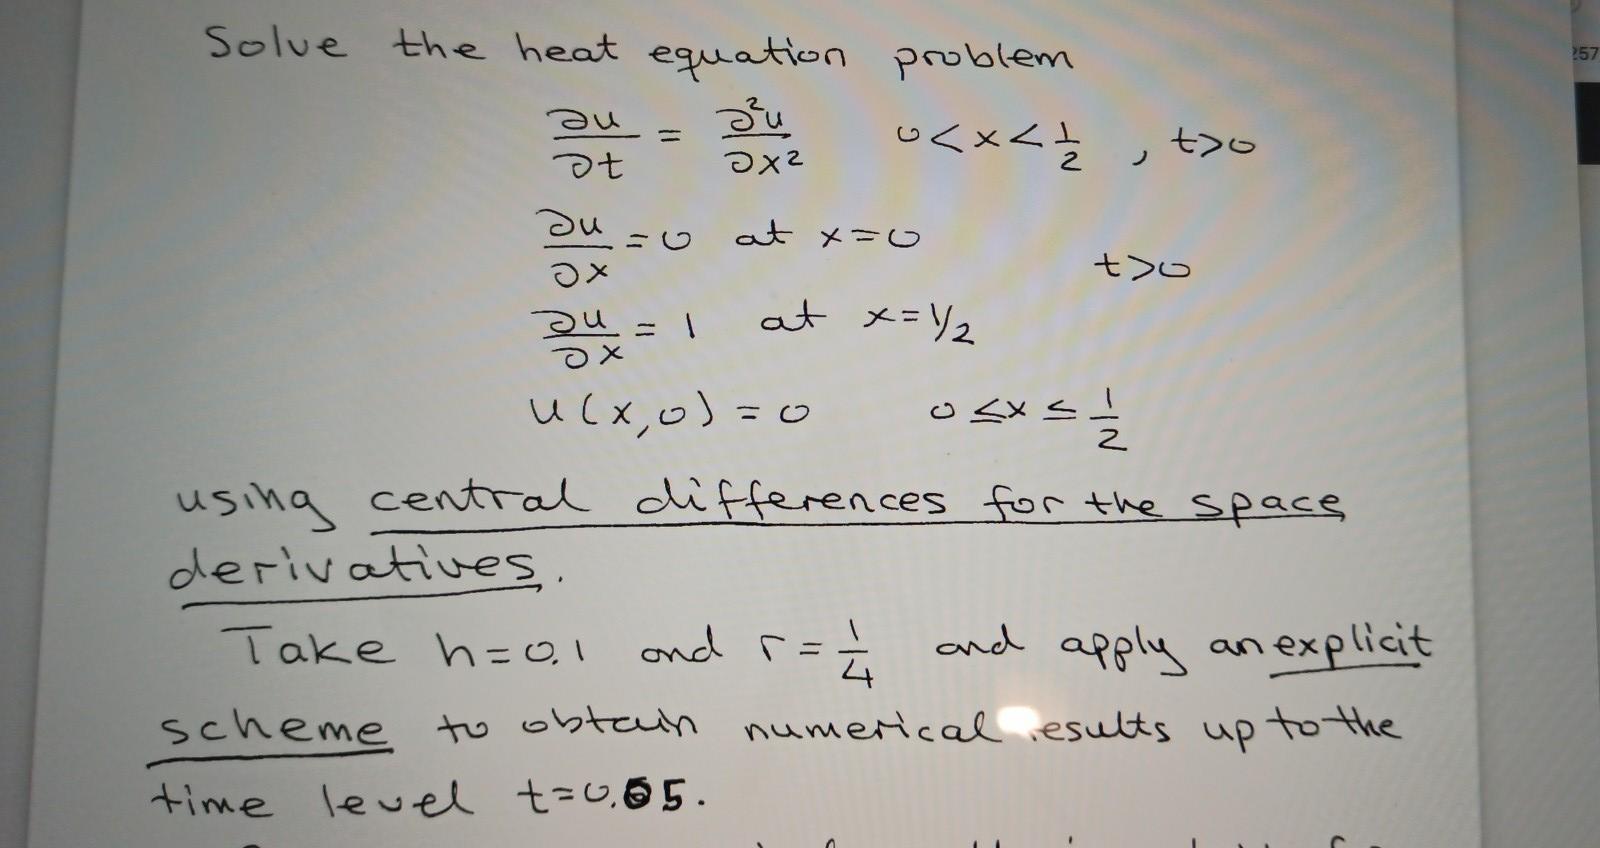 Solve the heat equation problem
∂u/∂t = ∂²u/∂x² 0<x<1/2 , t>0
∂u/∂x = 0 at x=0
t>0
∂u/∂x = 1 at x=1/2
u(x,0) = 0 0≤x≤1/2
using central differences for the space
derivatives.
Take h=0.1 and r=1/4 and apply an explicit
scheme to obtain numerical results up to the
time level t=0.05.
257